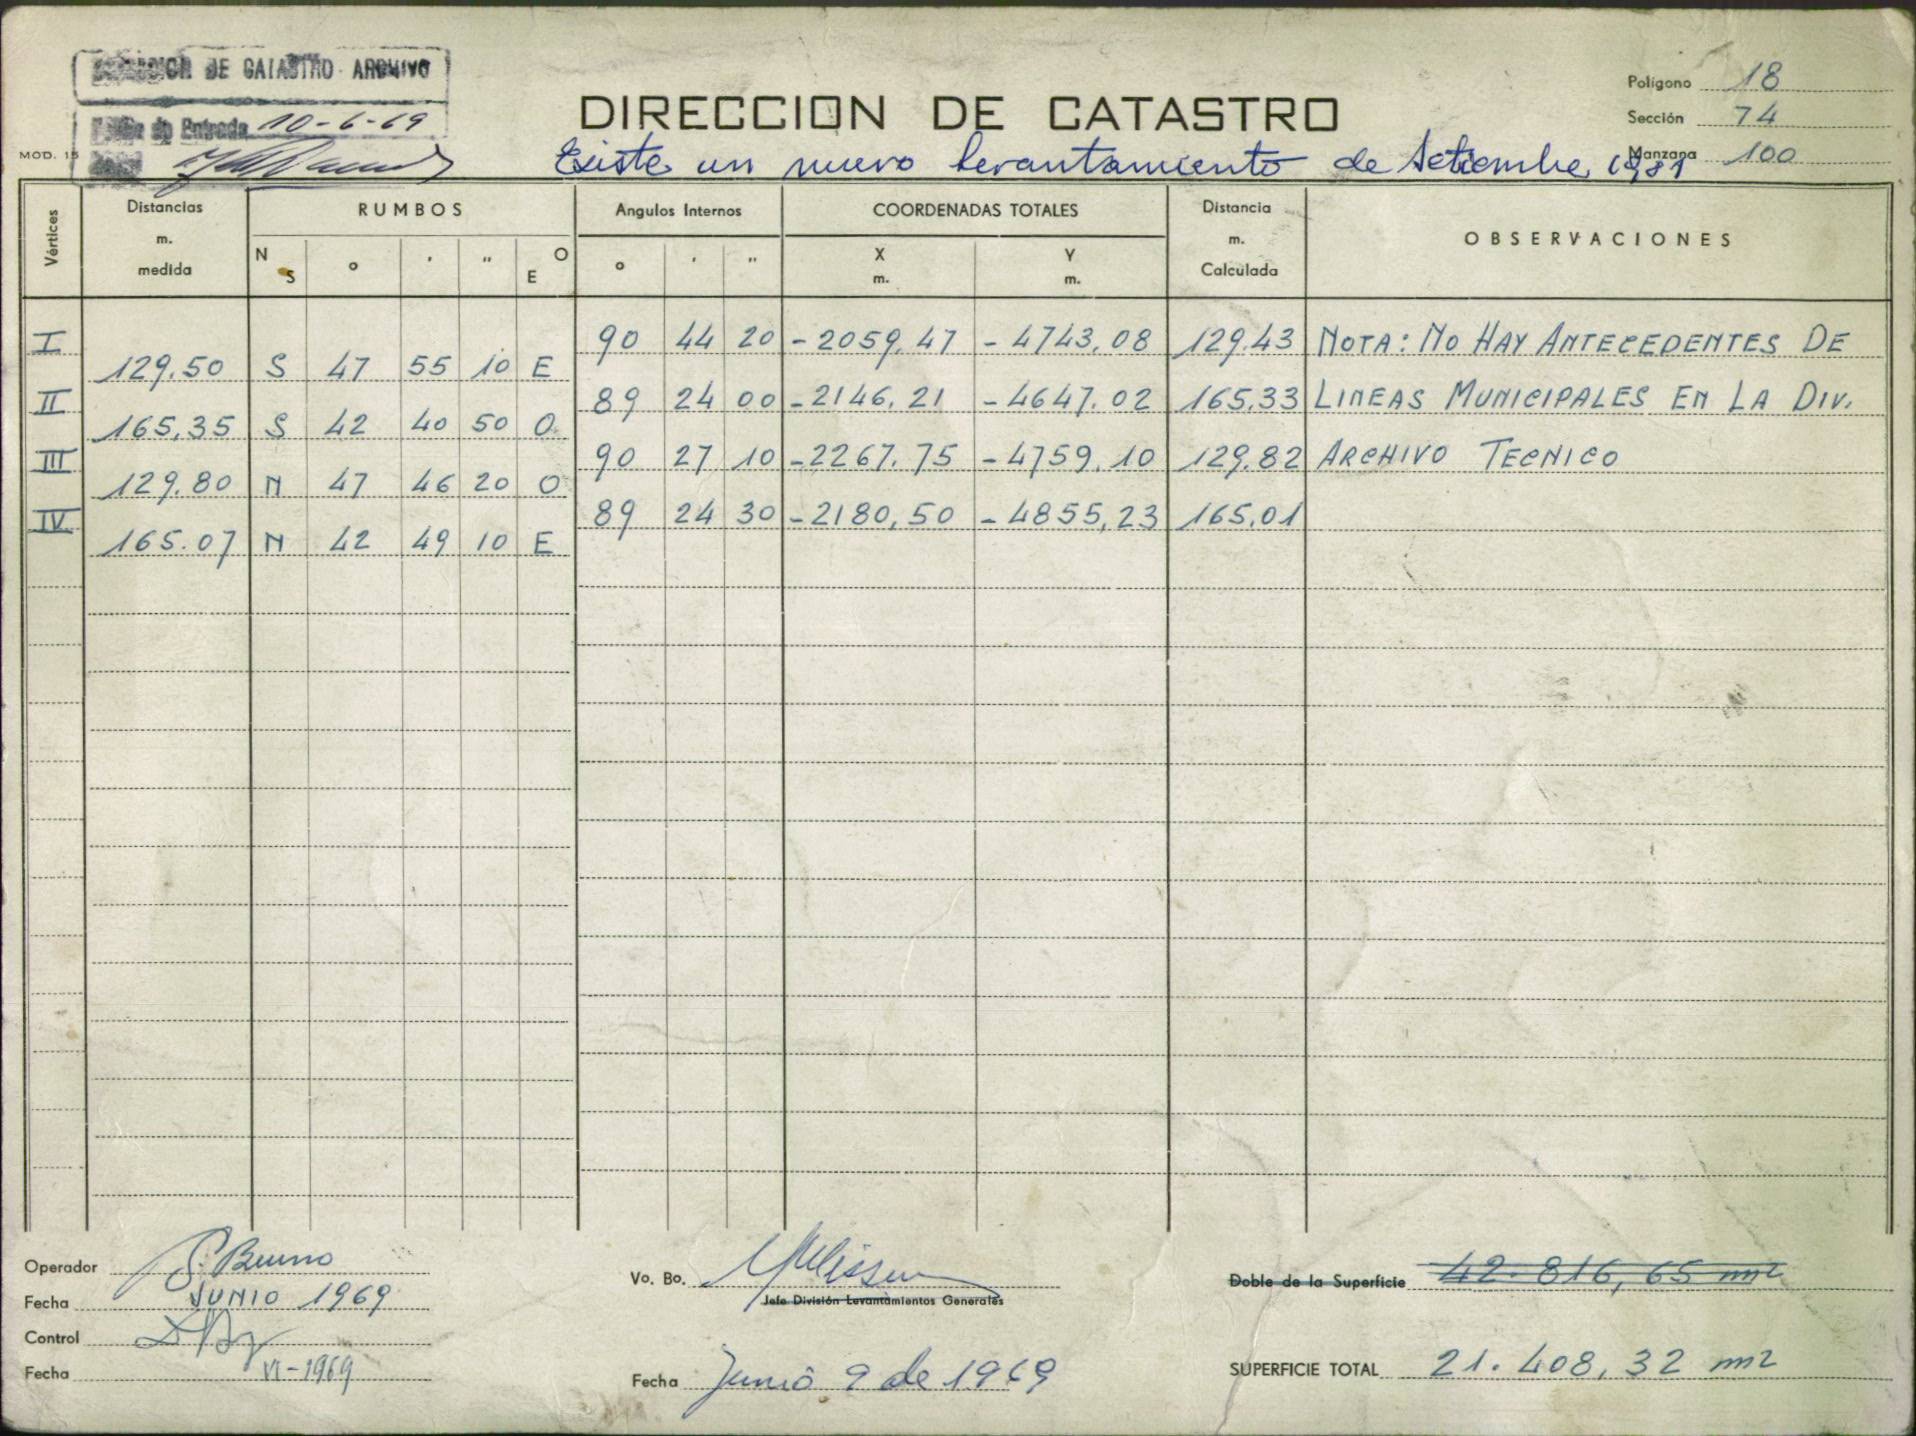 DIVISION DE CATASTRO - ARCHIVO
Fecha de Entrada 10-6-69
MOD. 15
DIRECCION DE CATASTRO
Polígono 18
Sección 74
Manzana 100
Existe un nuevo levantamiento de Setiembre 1981
Vértices
Distancias m. medida
RUMBOS
N S o ' " O E
Angulos Internos
o ' "
COORDENADAS TOTALES
X m. Y m.
Distancia m. Calculada
OBSERVACIONES
I 90 44 20 -2059,47 -4743,08 129.43 NOTA: NO HAY ANTECEDENTES DE
129.50 S 47 55 10 E
II 89 24 00 -2146,21 -4647.02 165,33 LINEAS MUNICIPALES EN LA DIV.
165,35 S 42 40 50 O
III 90 27 10 -2267.75 -4759,10 129,82 ARCHIVO TECNICO
129.80 N 47 46 20 O
IV 89 24 30 -2180,50 -4855,23 165,01
165.07 N 42 49 10 E
Operador S. Bueno
Fecha JUNIO 1969
Control
Fecha VI-1969
Vo. Bo.
Jefe División Levantamientos Generales
Fecha Junio 9 de 1969
Doble de la Superficie 42.816,65 m2
SUPERFICIE TOTAL 21.408,32 m2